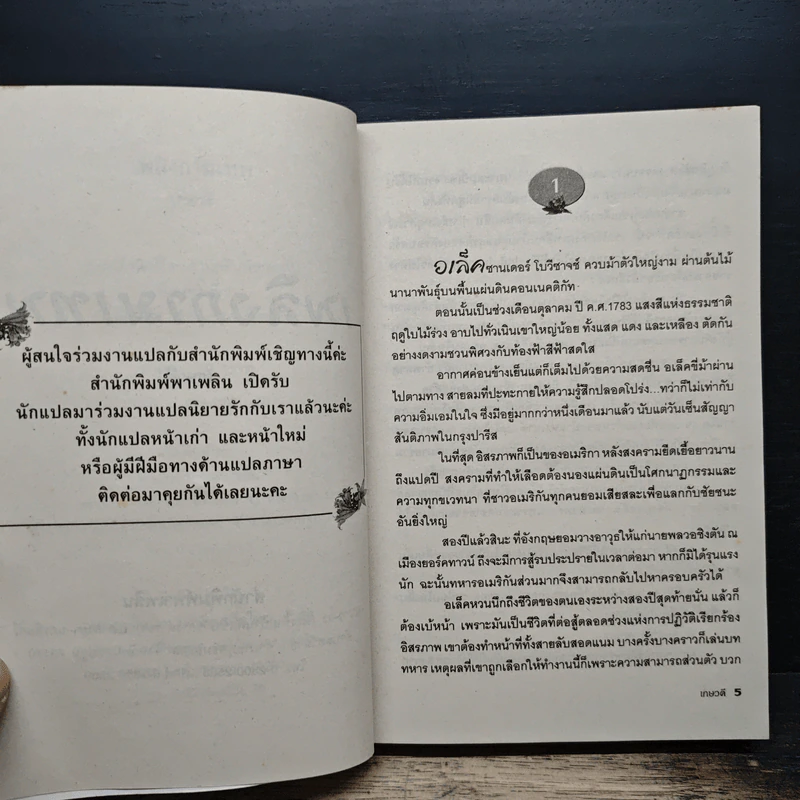 ผู้สนใจร่วมงานแปลกับสำนักพิมพ์เชิญทางนี้ค่ะ
สำนักพิมพ์พาเพลิน เปิดรับ
นักแปลมาร่วมงานแปลนิยายรักกับเราแล้วนะคะ
ทั้งนักแปลหน้าเก่า และหน้าใหม่
หรือผู้มีฝีมือทางด้านแปลภาษา
ติดต่อมาคุยกันได้เลยนะคะ
1
อเล็คซานเดอร์ โบวีซาจซ์ ควบม้าตัวใหญ่งาม ผ่านต้นไม้
นานาพันธุ์บนพื้นแผ่นดินคอนเนคติกัท
ตอนนั้นเป็นช่วงเดือนตุลาคม ปี ค.ศ.1783 แสงสีแห่งธรรมชาติ
ฤดูใบไม้ร่วง อาบไปทั่วเนินเขาใหญ่น้อย ทั้งแสด แดง และเหลือง ตัดกัน
อย่างงดงามชวนพิศวงกับท้องฟ้าสีฟ้าสดใส
อากาศค่อนข้างเย็นแต่ก็เต็มไปด้วยความสดชื่น อเล็คขี่ม้าผ่าน
ไปตามทาง สายลมที่ปะทะกายให้ความรู้สึกปลอดโปร่ง...ทว่าก็ไม่เท่ากับ
ความอิ่มเอมในใจ ซึ่งมีอยู่มากกว่าหนึ่งเดือนมาแล้ว นับแต่วันเซ็นสัญญา
สันติภาพในกรุงปารีส
ในที่สุด อิสรภาพก็เป็นของอเมริกา หลังสงครามยืดเยื้อยาวนาน
ถึงแปดปี สงครามที่ทำให้เลือดต้องนองแผ่นดินเป็นโศกนาฏกรรมและ
ความทุกขเวทนา ที่ชาวอเมริกันทุกคนยอมเสียสละเพื่อแลกกับชัยชนะ
อันยิ่งใหญ่
สองปีแล้วสินะ ที่อังกฤษยอมวางอาวุธให้แก่นายพลวอชิงตัน ณ
เมืองยอร์คทาวน์ ถึงจะมีการสู้รบประปรายในเวลาต่อมา หากก็มิได้รุนแรง
นัก ฉะนั้นทหารอเมริกันส่วนมากจึงสามารถกลับไปหาครอบครัวได้
อเล็คหวนนึกถึงชีวิตของตนเองระหว่างสองปีสุดท้ายนั่น แล้วก็
ต้องเบ้หน้า เพราะมันเป็นชีวิตที่ต่อสู้ตลอดช่วงแห่งการปฏิวัติเรียกร้อง
อิสรภาพ เขาต้องทำหน้าที่ทั้งสายลับสอดแนม บางครั้งบางคราวก็เล่นบท
ทหาร เหตุผลที่เขาถูกเลือกให้ทำงานนี้ก็เพราะความสามารถส่วนตัว บวก
เกษวดี 5